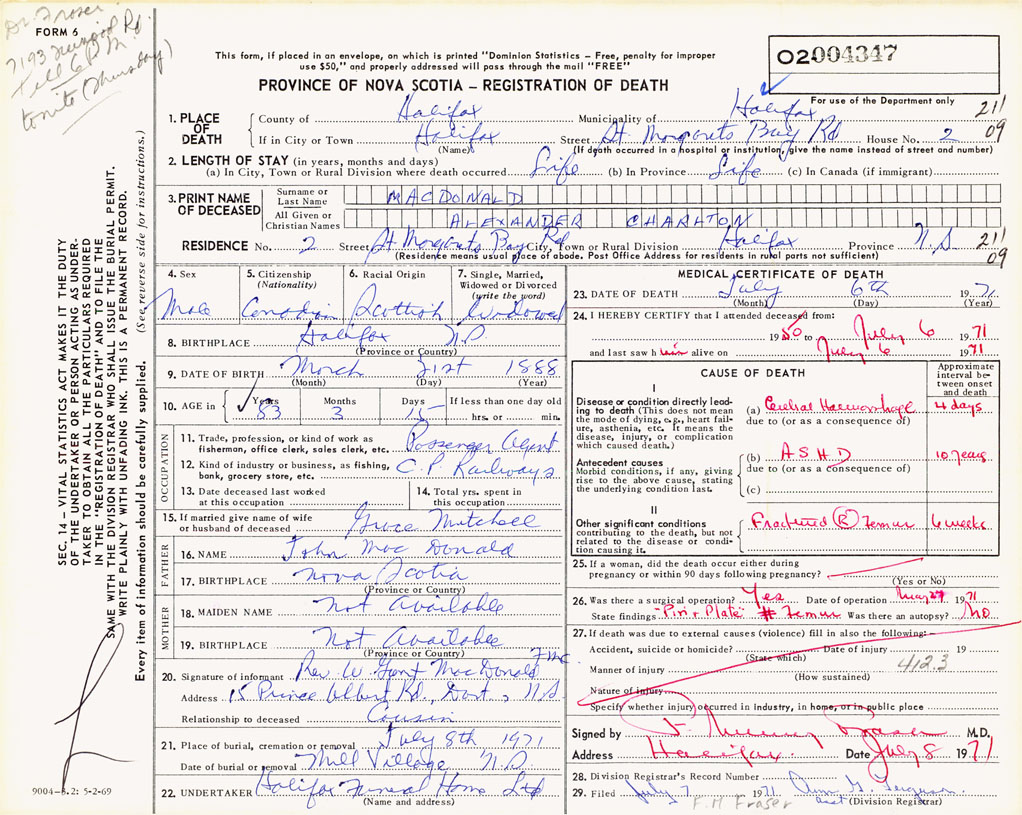 Dr. Fraser
FORM 6
7193 Rd
Tell 6 P.M.
tonite (Thursday)
This form, if placed in an envelope, on which is printed "Dominion Statistics — Free, penalty for improper
use $50," and properly addressed will pass through the mail "FREE"
02004347
PROVINCE OF NOVA SCOTIA — REGISTRATION OF DEATH
For use of the Department only
1. PLACE OF DEATH
County of Halifax Municipality of Halifax 211
If in City or Town Halifax Street St Margarets Bay Rd House No. 2 09
(Name) (If death occurred in a hospital or institution, give the name instead of street and number)
2. LENGTH OF STAY (in years, months and days)
(a) In City, Town or Rural Division where death occurred Life (b) In Province Life (c) In Canada (if immigrant)
3. PRINT NAME OF DECEASED
Surname or Last Name MACDONALD
All Given or Christian Names ALEXANDER CHARLTON
RESIDENCE No. 2 Street St Margarets Bay Rd City, Town or Rural Division Halifax Province N.S. 211
(Residence means usual place of abode. Post Office Address for residents in rural parts not sufficient) 09
4. Sex Male
5. Citizenship (Nationality) Canadian
6. Racial Origin Scottish
7. Single, Married, Widowed or Divorced (write the word) Widowed
8. BIRTHPLACE Halifax N.S.
(Province or Country)
9. DATE OF BIRTH March 21st 1888
(Month) (Day) (Year)
10. AGE in Years 83 Months 3 Days 15 If less than one day old
hrs. or min.
OCCUPATION
11. Trade, profession, or kind of work as fisherman, office clerk, sales clerk, etc. Passenger Agent
12. Kind of industry or business, as fishing, bank, grocery store, etc. C.P. Railways
13. Date deceased last worked at this occupation
14. Total yrs. spent in this occupation
15. If married give name of wife or husband of deceased Grace Mitchell
FATHER
16. NAME John Mac Donald
17. BIRTHPLACE Nova Scotia
(Province or Country)
MOTHER
18. MAIDEN NAME Not Available
19. BIRTHPLACE Not Available
(Province or Country)
20. Signature of informant Rev. W. Grant MacDonald
Address 15 Prince Albert Rd., Dart., N.S.
Relationship to deceased Cousin
21. Place of burial, cremation or removal July 8th 1971
Date of burial or removal Mill Village N.S.
22. UNDERTAKER Halifax Funeral Home Ltd
(Name and address)
MEDICAL CERTIFICATE OF DEATH
23. DATE OF DEATH July 6th 1971
(Month) (Day) (Year)
24. I HEREBY CERTIFY that I attended deceased from:
1950 to July 6 1971
and last saw him alive on July 6 1971
CAUSE OF DEATH
Approximate interval between onset and death
I
Disease or condition directly leading to death (This does not mean the mode of dying, e.g., heart failure, asthenia, etc. It means the disease, injury, or complication which caused death.)
(a) Cerebral Haemorrhage 4 days
due to (or as a consequence of)
Antecedent causes
Morbid conditions, if any, giving rise to the above cause, stating the underlying condition last.
(b) A S H D 10 years
due to (or as a consequence of)
(c)
II
Other significant conditions contributing to the death, but not related to the disease or condition causing it.
Fractured (R) Femur 6 weeks
25. If a woman, did the death occur either during pregnancy or within 90 days following pregnancy?
(Yes or No)
26. Was there a surgical operation? Yes Date of operation May 27 1971
State findings "Pin & Plate" # Femur Was there an autopsy? No
27. If death was due to external causes (violence) fill in also the following:—
Accident, suicide or homicide? Date of injury 19
(State which)
Manner of injury 412.3
(How sustained)
Nature of injury
Specify whether injury occurred in industry, in home, or in public place
Signed by J. Murray Fraser M.D.
Address Halifax. Date July 8 1971
28. Division Registrar's Record Number
29. Filed July 7 1971 Ann G. Ferguson
F. M Fraser asst (Division Registrar)
SEC. 14 — VITAL STATISTICS ACT MAKES IT THE DUTY
OF THE UNDERTAKER OR PERSON ACTING AS UNDER-
TAKER TO OBTAIN ALL THE PARTICULARS REQUIRED
IN THE "REGISTRATION OF DEATH" AND TO FILE THE
SAME WITH THE DIVISION REGISTRAR WHO SHALL ISSUE THE BURIAL PERMIT.
WRITE PLAINLY WITH UNFADING INK. THIS IS A PERMANENT RECORD.
Every item of information should be carefully supplied. (See reverse side for instructions.)
9004-S.2: 5-2-69